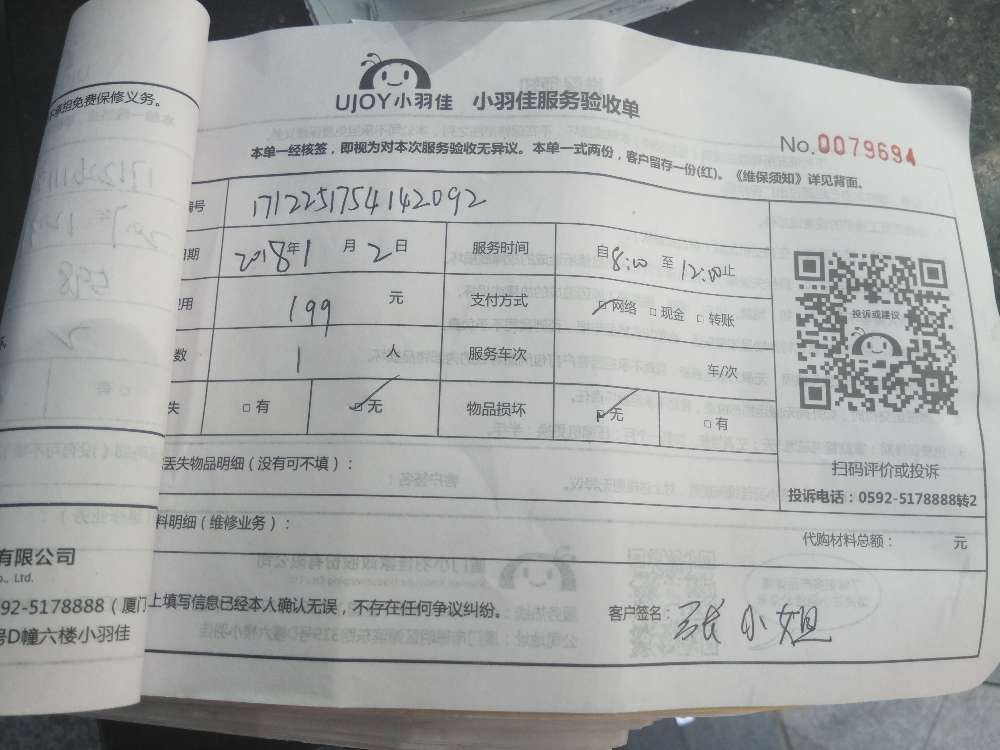 UJOY小羽佳 小羽佳服务验收单
No.0079694
本单一经核签，即视为对本次服务验收无异议。本单一式两份，客户留存一份(红)。《维保须知》详见背面。
编号 1712251754142092
期 2018年1月2日 服务时间 自8:00至12:00止
用 199 元 支付方式 网络 现金 转账
数 1 人 服务车次 车/次
失 有 无 物品损坏 无 有
丢失物品明细（没有可不填）：
料明细（维修业务）：
代购材料总额： 元
上填写信息已经本人确认无误，不存在任何争议纠纷。
客户签名：张小姐
投诉或建议
扫码评价或投诉
投诉电话：0592-5178888转2
承担免费保修义务。
598
有
有限公司
o., Ltd.
92-5178888（厦门
号D幢六楼小羽佳